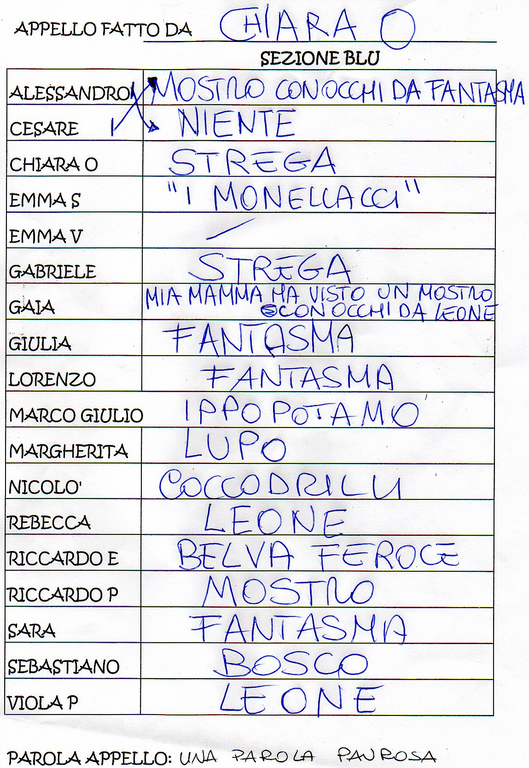 APPELLO FATTO DA CHIARA O
SEZIONE BLU
ALESSANDRO MOSTRO CON OCCHI DA FANTASMA
CESARE NIENTE
CHIARA O STREGA
EMMA S "I MONELLACCI"
EMMA V
GABRIELE STREGA
GAIA MIA MAMMA HA VISTO UN MOSTRO
CON OCCHI DA LEONE
GIULIA FANTASMA
LORENZO FANTASMA
MARCO GIULIO IPPOPOTAMO
MARGHERITA LUPO
NICOLO' COCCODRILLI
REBECCA LEONE
RICCARDO E BELVA FEROCE
RICCARDO P MOSTRO
SARA FANTASMA
SEBASTIANO BOSCO
VIOLA P LEONE
PAROLA APPELLO: UNA PAROLA PAUROSA